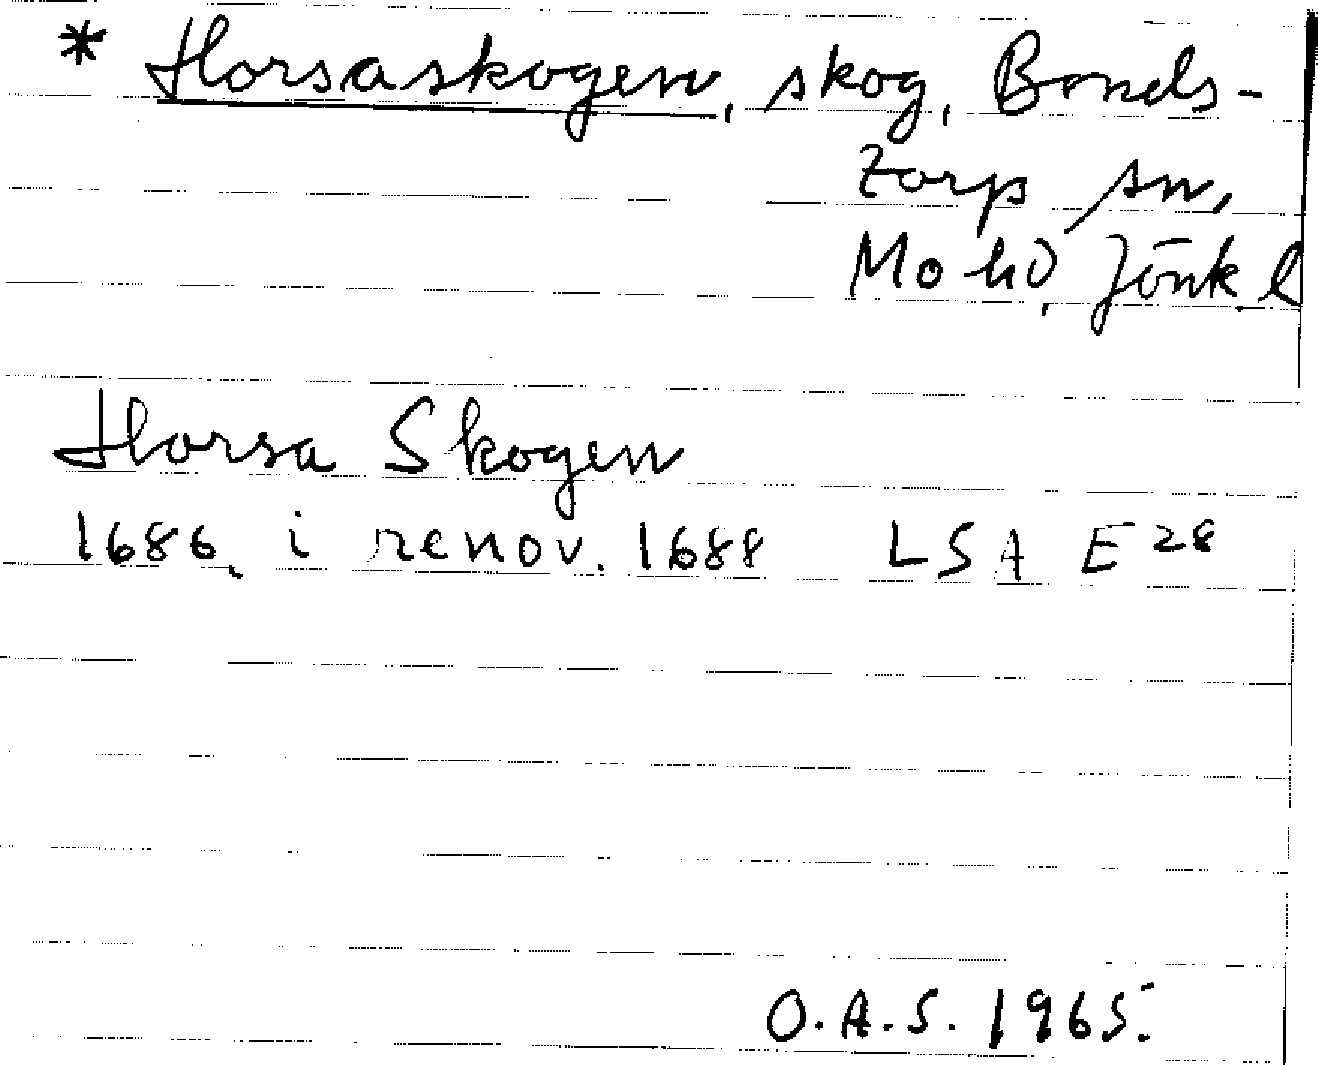 * Horsaskogen, skog, Bonds-
torp sn,
Mo hd, Jönk. l
Horsa Skogen
1686, i renov. 1688 LSA E28
O.A.S. 1965.